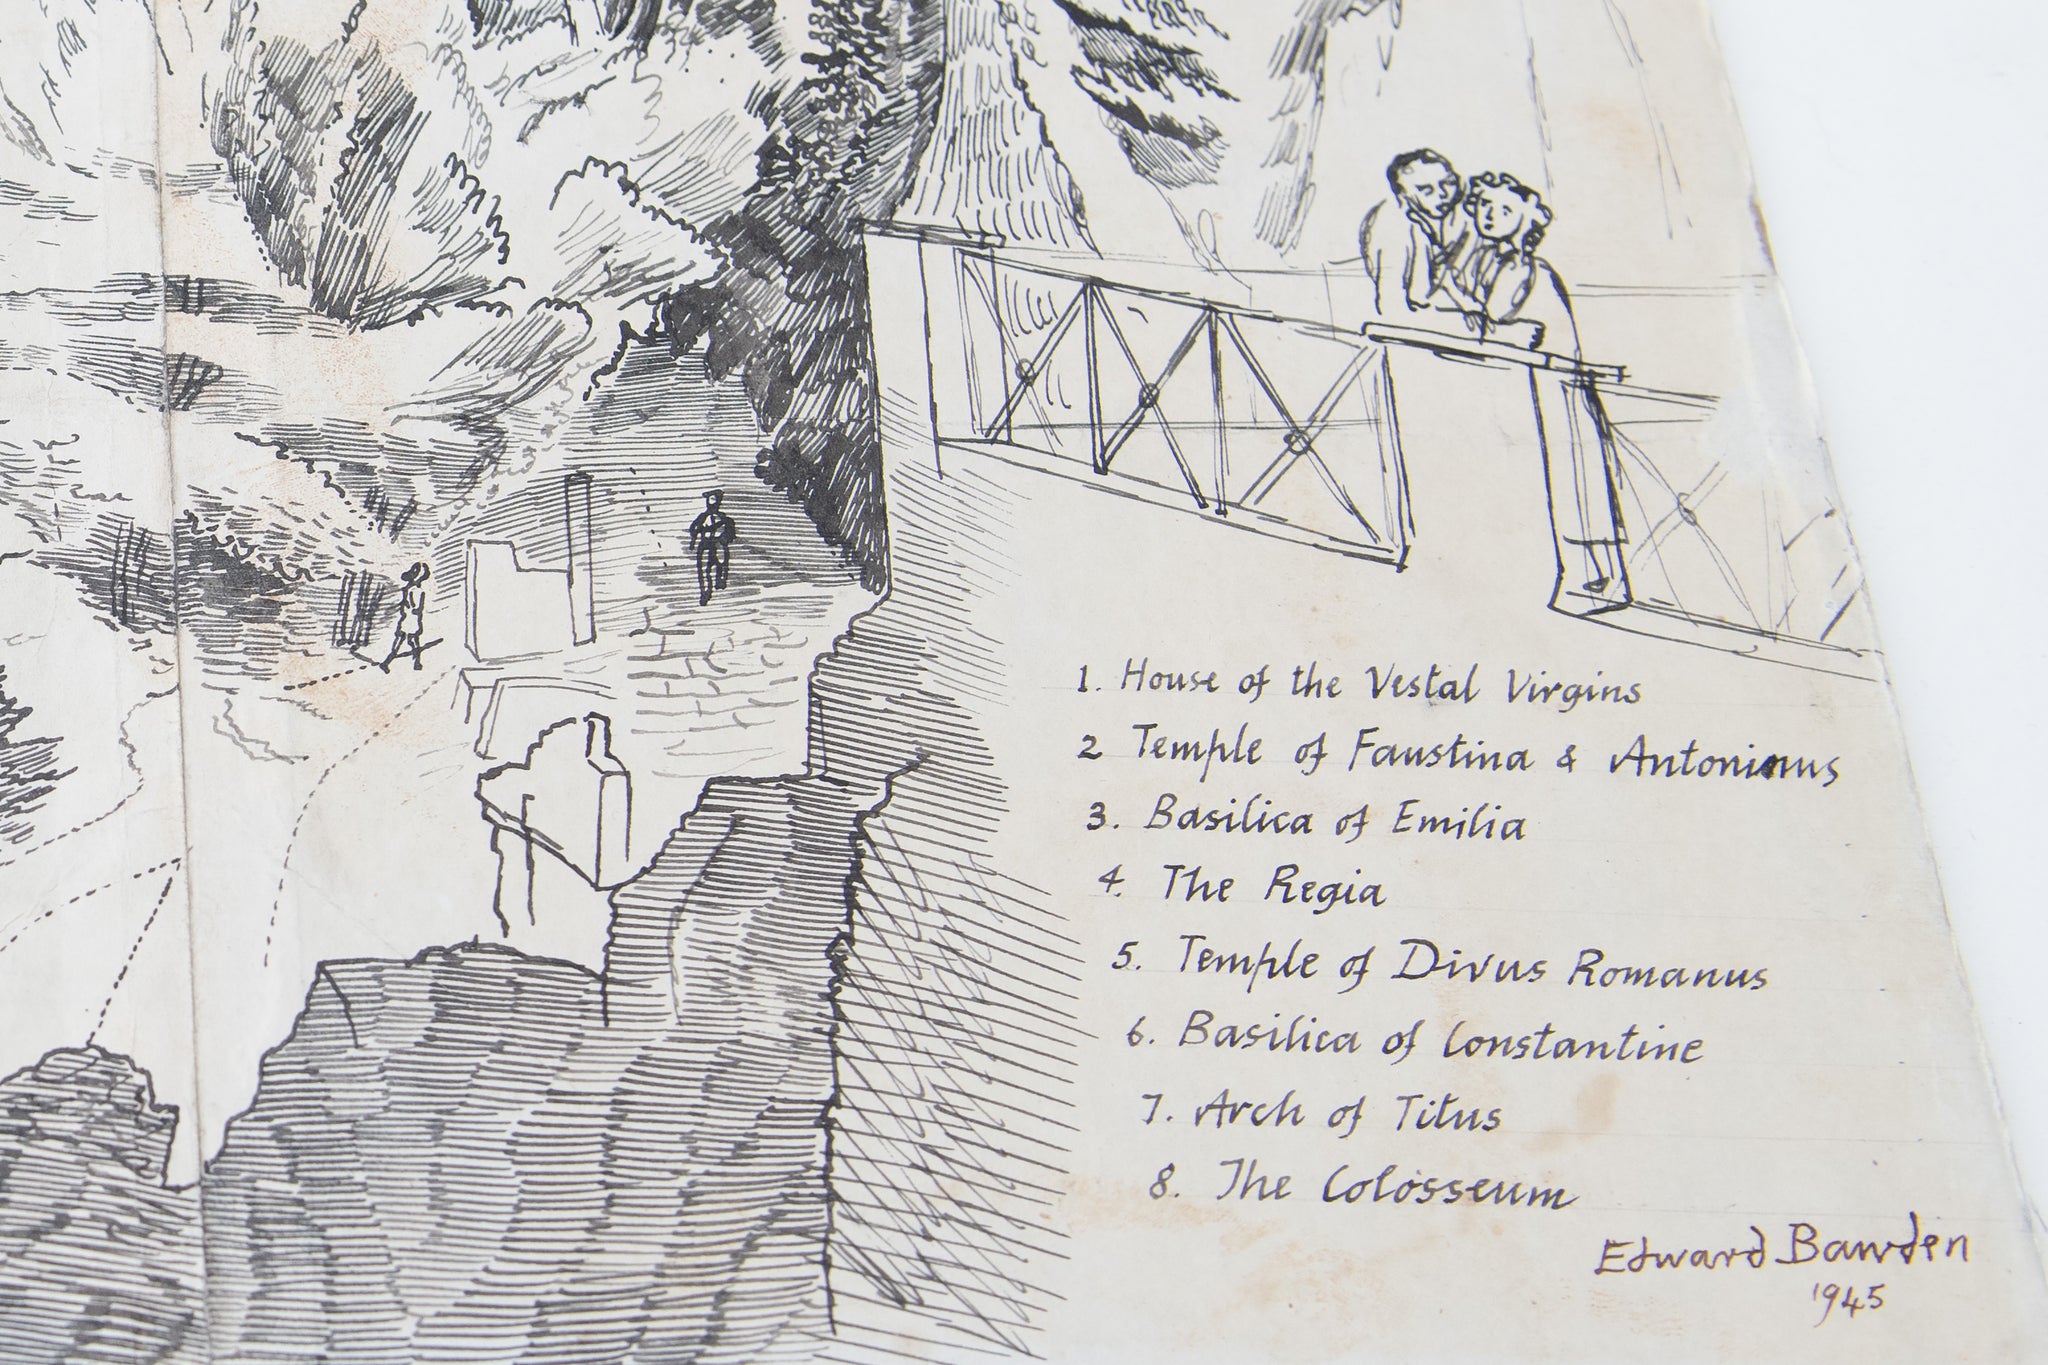 1. House of the Vestal Virgins
2 Temple of Faustina & Antoninus
3. Basilica of Emilia
4. The Regia
5. Temple of Divus Romanus
6. Basilica of Constantine
7. Arch of Titus
8. The Colosseum
Edward Bawden
1945